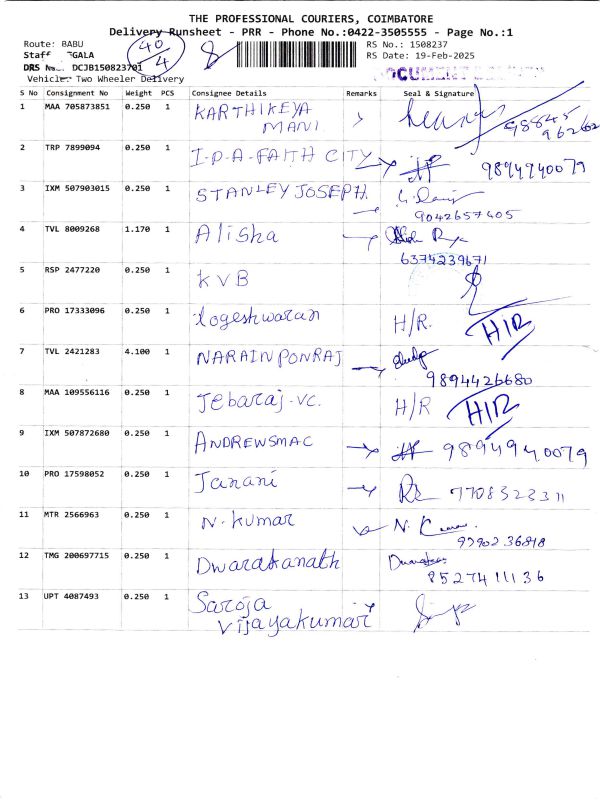 THE PROFESSIONAL COURIERS, COIMBATORE
Delivery Runsheet - PRR - Phone No.:0422-3505555 - Page No.:1
Route: BABU 40/4 8 RS No.: 1508237
Staff GALA RS Date: 19-Feb-2025
DRS DCJB150823701
Vehicle: Two Wheeler Delivery
S No Consignment No Weight PCS Consignee Details Remarks Seal & Signature
1 MAA 705873851 0.250 1 KARTHIKEYA 98845
MANI 96262
2 TRP 7899094 0.250 1 I-P-A-FAITH CITY 9894940079
3 IXM 507903015 0.250 1 STANLEY JOSEPH
9042657405
4 TVL 8009268 1.170 1 Alisha
6374239671
5 RSP 2477220 0.250 1 KVB
6 PRO 17333096 0.250 1 Logeshwaran H/R. H/R
7 TVL 2421283 4.100 1 NARAIN PONRAJ
9894426680
8 MAA 109556116 0.250 1 Jebaraj-vc. H/R H/R
9 IXM 507872680 0.250 1 ANDREWSMAC 9894940079
10 PRO 17598052 0.250 1 Janani 7708323311
11 MTR 2566963 0.250 1 N. Kumar
12 TMG 200697715 0.250 1 Dwarakanath
8527411136
13 UPT 4087493 0.250 1 Saroja
Vijayakumar